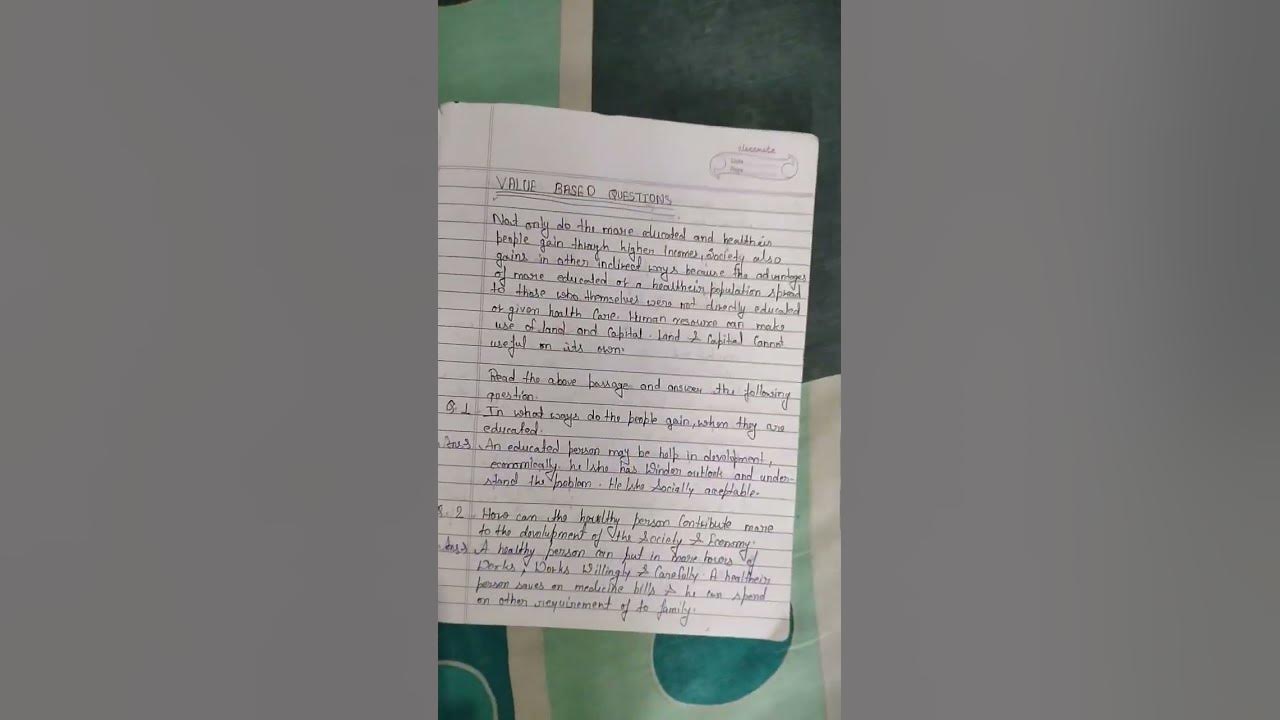 classmate
Date
Page
VALUE BASED QUESTIONS
Not only do the more educated and healtheir
people gain through higher Incomes, Society also
gains in other indirect ways because the advantages
of more educated or a healtheir population spread
to those who themselves were not directly educated
or given health Care. Human resource can make
use of land and Capital. Land & Capital Cannot
useful on its own.
Read the above passage and answer the following
question.
Q.1 In what ways do the people gain, when they are
educated.
Ans An educated person may be help in development,
economically. he/she has Winder outlook and under-
stand the problem. He/she Socially acceptable.
2. How can the healthy person Contribute more
to the development of the Society & Economy.
Ans A healthy person can put in more hours of
Works, Works Willingly & Carefully. A healtheir
person saves on medicine bills & he can spend
on other requirement of to family.